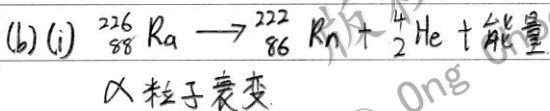 (b) (i) ²²⁶₈₈ Ra ⟶ ²²²₈₆ Rn + ⁴₂ He + 能量
α 粒子衰变